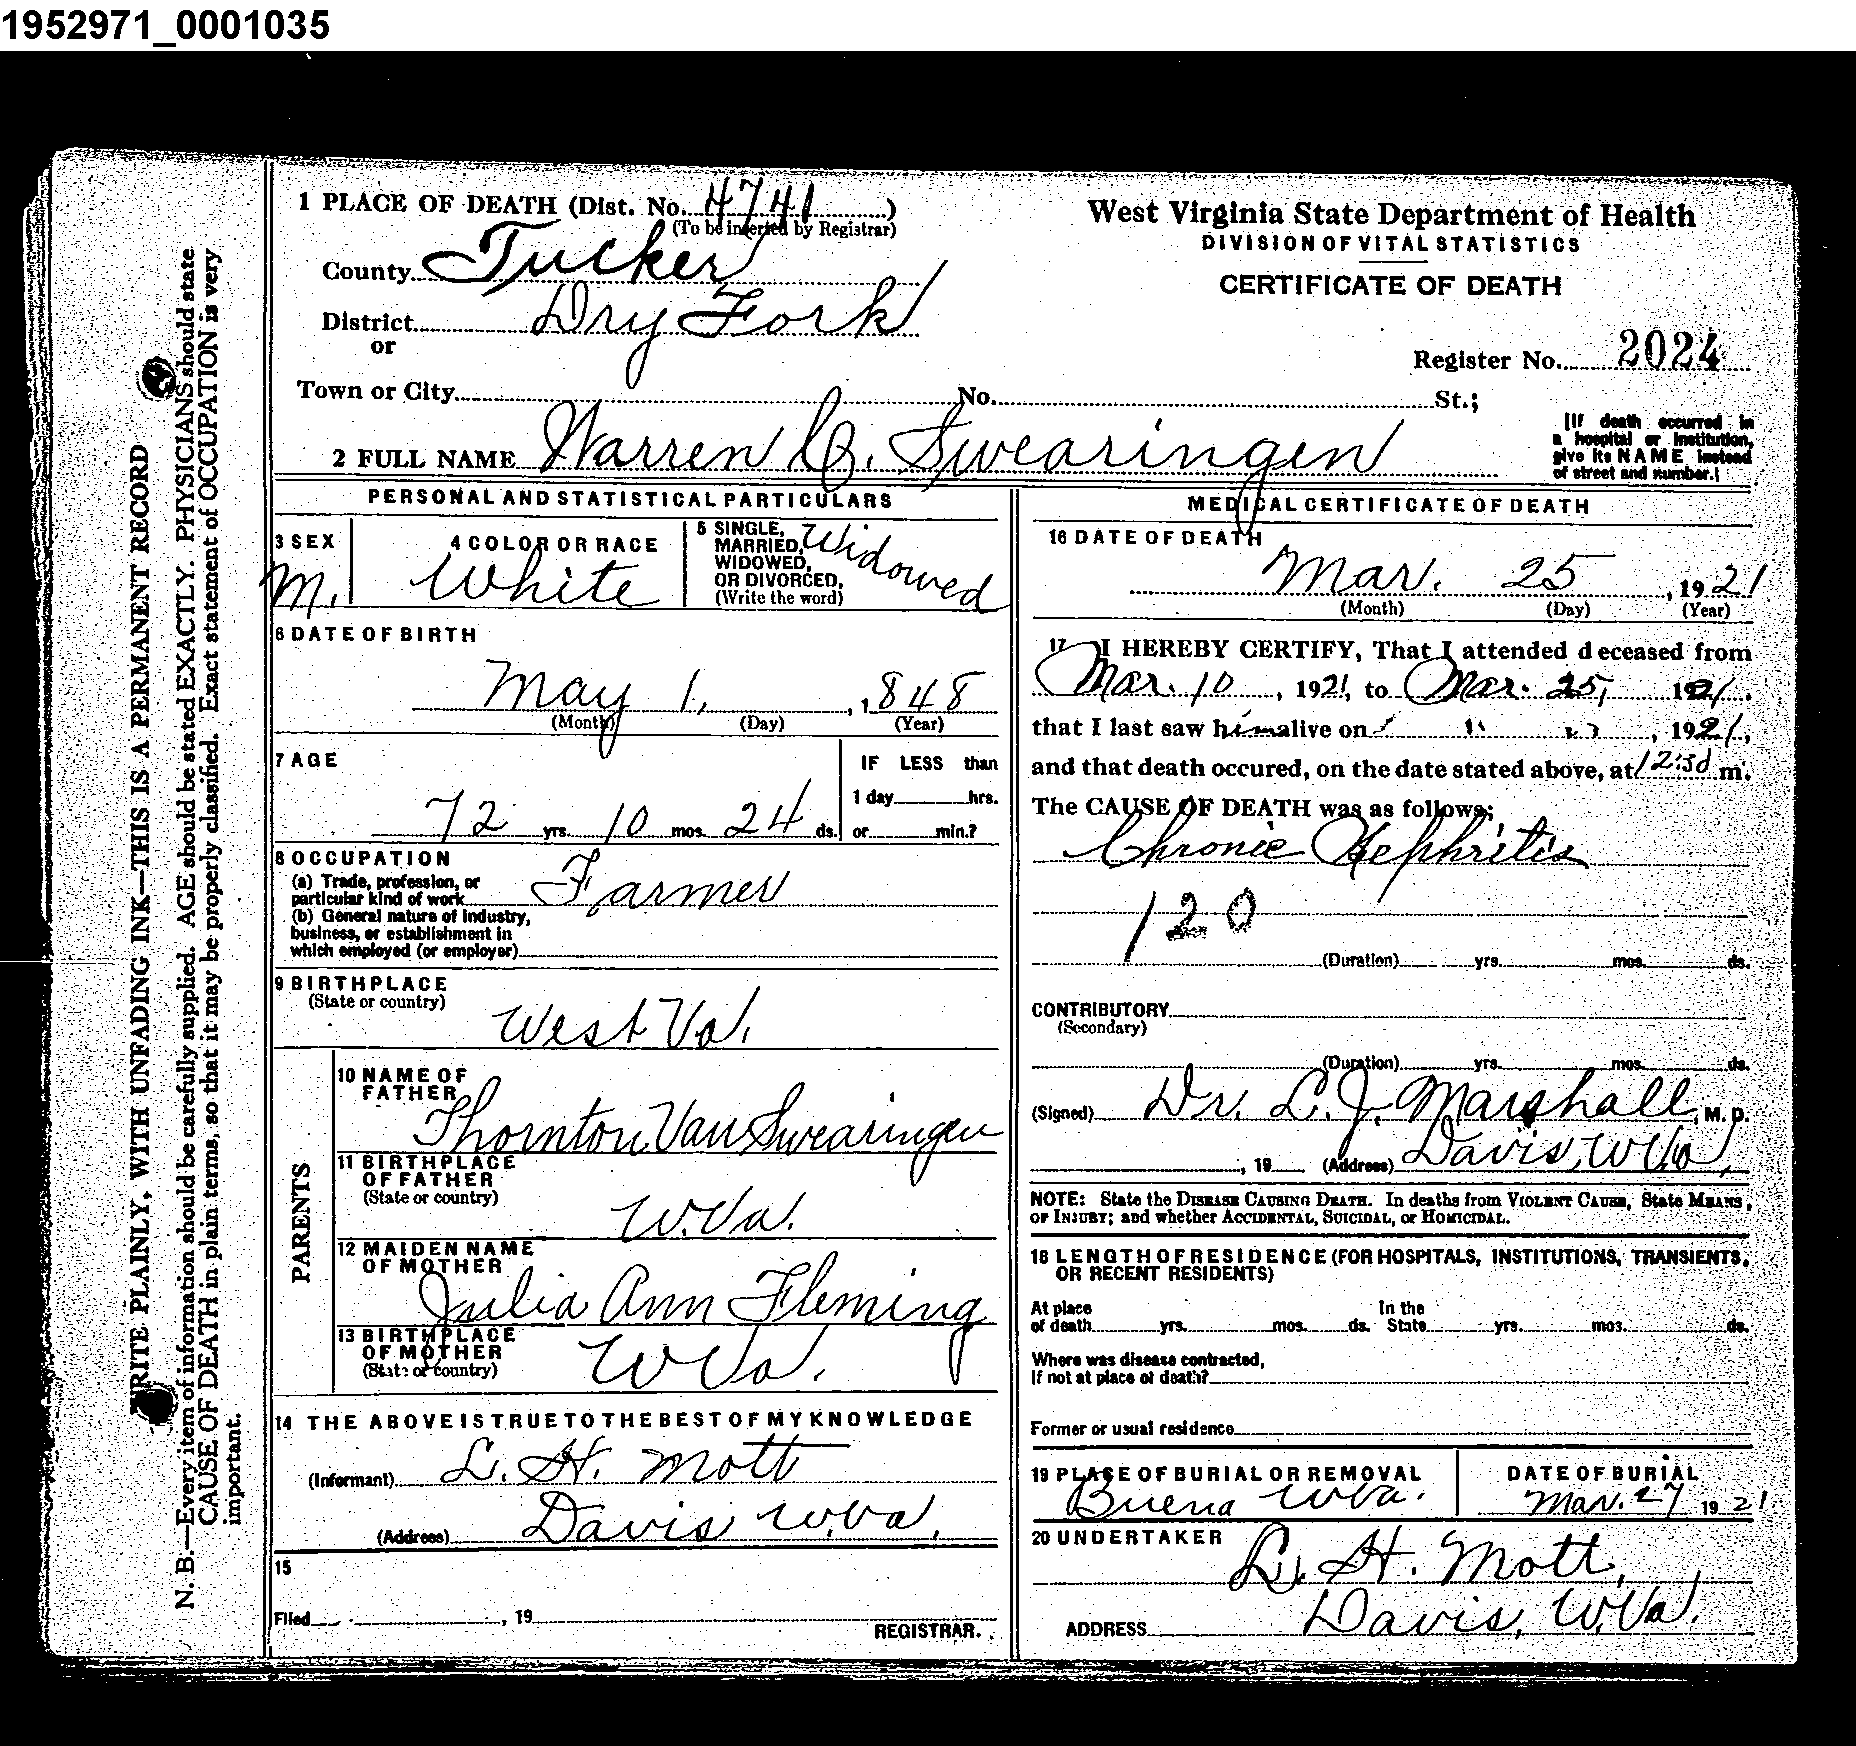 1952971_0001035
1 PLACE OF DEATH (Dist. No. 4741)
(To be inserted by Registrar)
County Tucker
District Dry Fork
or
Town or City No. St.;
2 FULL NAME Warren B. Swearingen
West Virginia State Department of Health
DIVISION OF VITAL STATISTICS
CERTIFICATE OF DEATH
Register No. 2024
[If death occurred in
a hospital or institution,
give its NAME instead
of street and number.]
PERSONAL AND STATISTICAL PARTICULARS
3 SEX
M.
4 COLOR OR RACE
White
5 SINGLE,
MARRIED,
WIDOWED,
OR DIVORCED,
(Write the word)
Widowed
6 DATE OF BIRTH
May 1, , 1848
(Month) (Day) (Year)
7 AGE
72 yrs. 10 mos. 24 ds.
IF LESS than
1 day hrs.
or min.?
8 OCCUPATION
(a) Trade, profession, or
particular kind of work Farmer
(b) General nature of industry,
business, or establishment in
which employed (or employer)
9 BIRTHPLACE
(State or country)
West Va.
PARENTS
10 NAME OF
FATHER
Thornton Van Swearingen
11 BIRTHPLACE
OF FATHER
(State or country)
W.Va.
12 MAIDEN NAME
OF MOTHER
Julia Ann Fleming
13 BIRTHPLACE
OF MOTHER
(State or country)
W Va.
14 THE ABOVE IS TRUE TO THE BEST OF MY KNOWLEDGE
(Informant) L. H. Mott
(Address) Davis W.Va.
15
Filed , 19
REGISTRAR.
MEDICAL CERTIFICATE OF DEATH
16 DATE OF DEATH
Mar. 25 , 1921
(Month) (Day) (Year)
17 I HEREBY CERTIFY, That I attended deceased from
Mar. 10 , 1921, to Mar. 25, 1921.
that I last saw him alive on " " , 1921,
and that death occured, on the date stated above, at 12:30 m.
The CAUSE OF DEATH was as follows:
Chronic Nephritis
120
(Duration) yrs. mos. ds.
CONTRIBUTORY
(Secondary)
(Duration) yrs. mos. ds.
(Signed) Dr. L. J. Marshall, M. D.
, 19 (Address) Davis, W Va,
NOTE: State the DISEASE CAUSING DEATH. In deaths from VIOLENT CAUSE, State MEANS,
OF INJURY; and whether ACCIDENTAL, SUICIDAL, or HOMICIDAL.
18 LENGTH OF RESIDENCE (FOR HOSPITALS, INSTITUTIONS, TRANSIENTS,
OR RECENT RESIDENTS)
At place
of death yrs. mos. ds.
In the
State yrs. mos. ds.
Where was disease contracted,
If not at place of death?
Former or usual residence
19 PLACE OF BURIAL OR REMOVAL
Buena W Va.
DATE OF BURIAL
Mar. 27 1921
20 UNDERTAKER
L. H. Mott,
ADDRESS Davis, W.Va.
WRITE PLAINLY, WITH UNFADING INK—THIS IS A PERMANENT RECORD
N. B.—Every item of information should be carefully supplied. AGE should be stated EXACTLY. PHYSICIANS should state
CAUSE OF DEATH in plain terms, so that it may be properly classified. Exact statement of OCCUPATION is very
important.